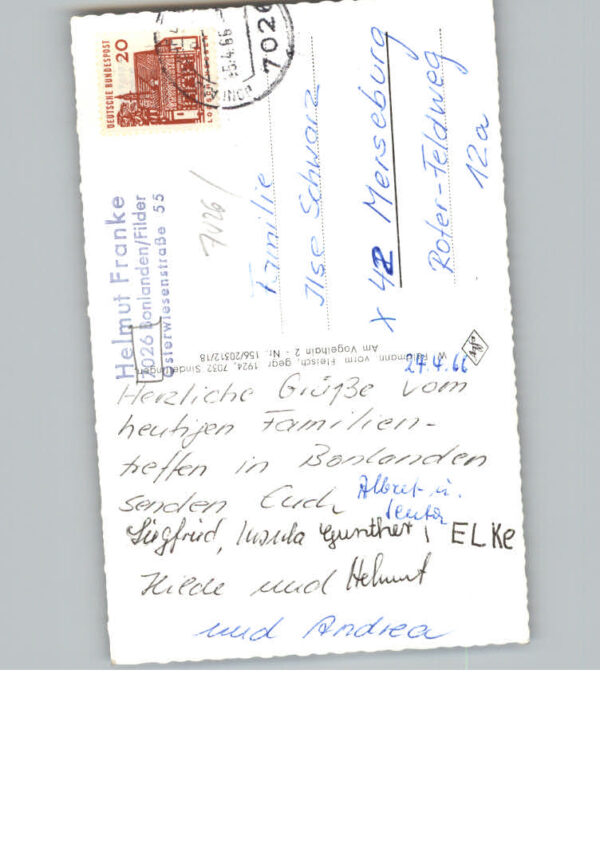 DEUTSCHE BUNDESPOST
20
7026
Helmut Franke
7026 Bonlanden/Filder
Osterwiesenstraße 55
7026/
Familie
Ilse Schwarz
X 42 Merseburg
Roter-Feldweg
12a
vorm. Fleisch, gegr. 1924, 7032 Sindelfingen
Am Vogelhain 2 - Nr. 156/20312/18
24.4.66
Herzliche Grüße vom
heutigen Familien-
treffen in Bonlanden
senden Euch
Siegfried, Ursula Gunther, ELKE
Hilde und Helmut
und Andrea